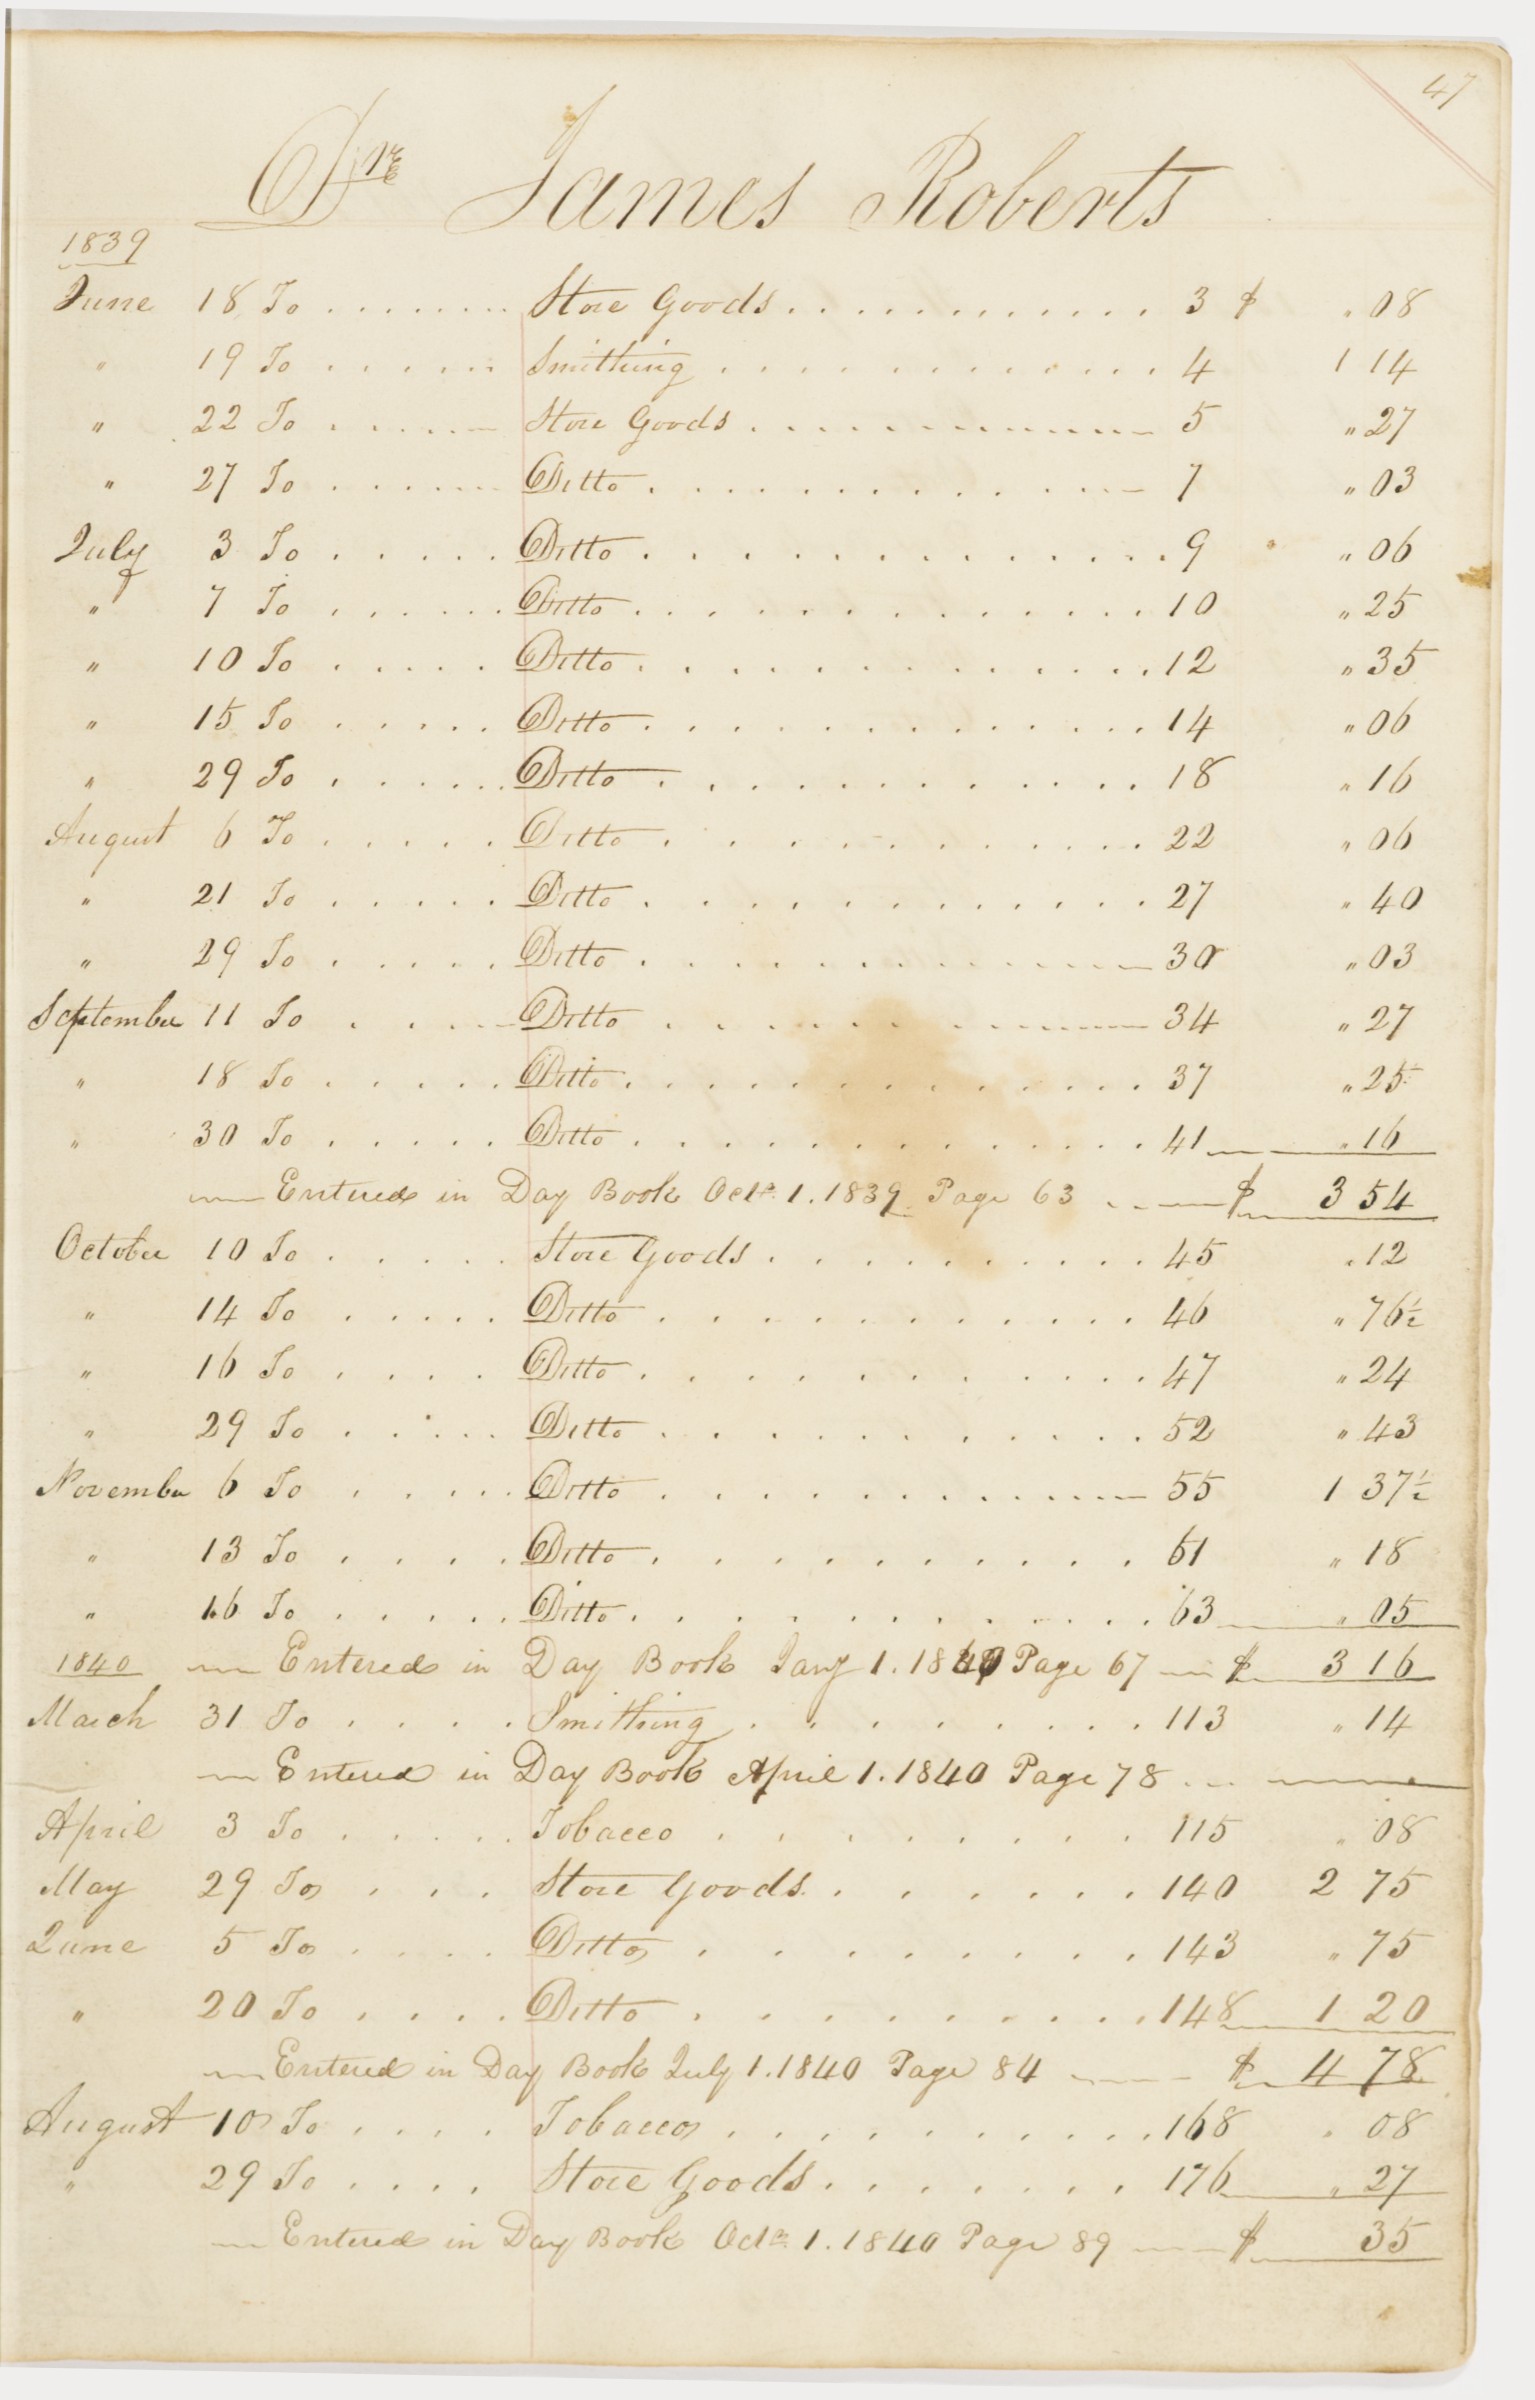 47
Dr James Roberts
1839
June 18 To ....... Store Goods ............ 3 $ " 08
" 19 To ...... Smithing ............ 4 1 14
" 22 To ...... Store Goods ............ 5 " 27
" 27 To ...... Ditto ............ 7 " 03
July 3 To ..... Ditto ............ 9 " 06
" 7 To ...... Ditto ............ 10 " 25
" 10 To ..... Ditto ............ 12 " 35
" 15 To ..... Ditto ............ 14 " 06
" 29 To ...... Ditto ............ 18 " 16
August 6 To ..... Ditto ............ 22 " 06
" 21 To ..... Ditto ............ 27 " 40
" 29 To ..... Ditto ............ 30 " 03
September 11 To .... Ditto ............ 34 " 27
" 18 To ..... Ditto ............ 37 " 25
" 30 To ..... Ditto ............ 41 " 16
Entered in Day Book Octr. 1. 1839 Page 63 $ 3 54
October 10 To ..... Store Goods .......... 45 " 12
" 14 To ..... Ditto ............ 46 " 76½
" 16 To .... Ditto ............ 47 " 24
" 29 To ..... Ditto ............ 52 " 43
November 6 To ..... Ditto ............ 55 1 37½
" 13 To .... Ditto ........... 61 " 18
" 16 To ..... Ditto ............ 63 " 05
1840 Entered in Day Book Jany 1. 1840 Page 67 $ 3 16
March 31 To .... Smithing .......... 113 " 14
Entered in Day Book April 1. 1840 Page 78
April 3 To ..... Tobacco ......... 115 " 08
May 29 To ... Store Goods ....... 140 2 75
June 5 To .... Ditto ......... 143 " 75
" 20 To .... Ditto .......... 148 1 20
Entered in Day Book July 1. 1840 Page 84 $ 4 78
August 10 To .... Tobacco .......... 168 " 08
" 29 To .... Store Goods ....... 176 " 27
Entered in Day Book Octr. 1. 1840 Page 89 $ 35